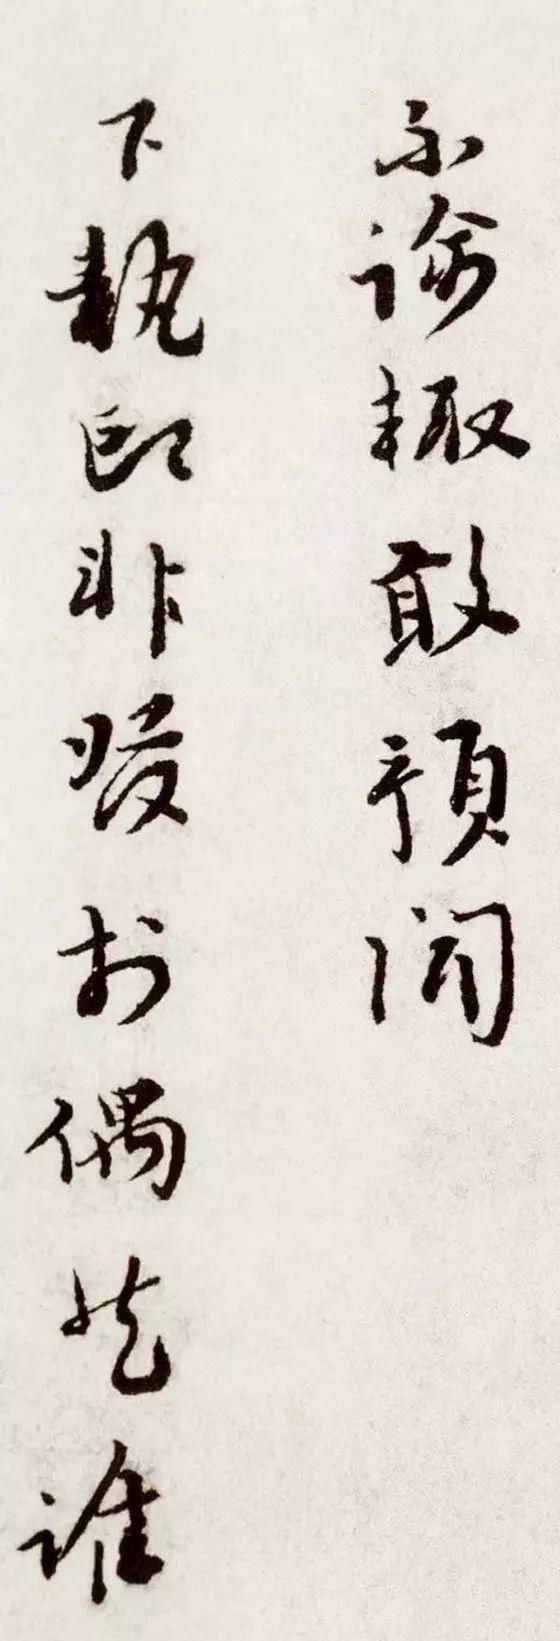 不諭輒敢預聞
下執印非發於偶然誰